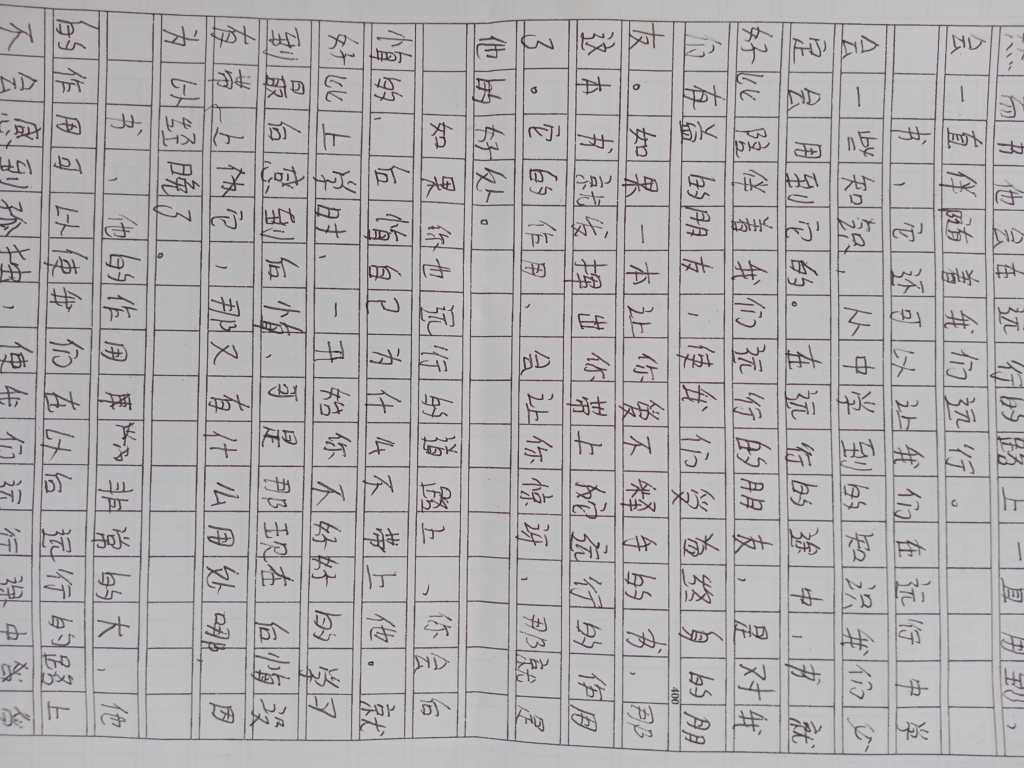 会在远行的路上一直用到，
会一直伴随着我们远行。
书，它还可以让我们在远行中学
会一些知识，从中学到的知识我们必
定会用到它的。在远行的途中，书就
好比陪伴着我们远行的朋友，是对我
们有益的朋友，使我们受益终身的朋
400
友。如果一本让你爱不释手的书，那
这本书就发挥出你带上它远行的作用
了。它的作用、会让你惊讶，那就是
他的好处。
如果你也远行的道路上、你会后
悔的、后悔自己为什么不带上他。就
好比上学时、一开始你不好好的学习
到最后感到后悔、可是那现在后悔没
有带上它，那又有什么用处呢，因
为以经晚了。
书、他的作用非常的大，他
的作用可以使我们在以后远行的路上
不会感到孤独，使我们远行